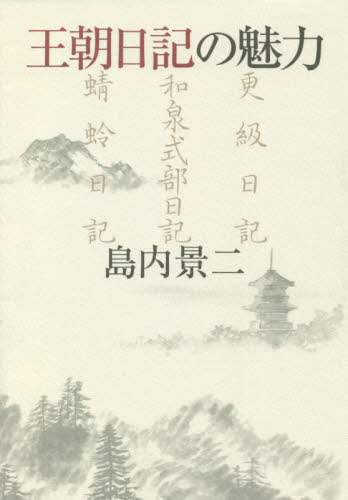 王朝日記の魅力
更級日記
和泉式部日記
蜻蛉日記
島内景二